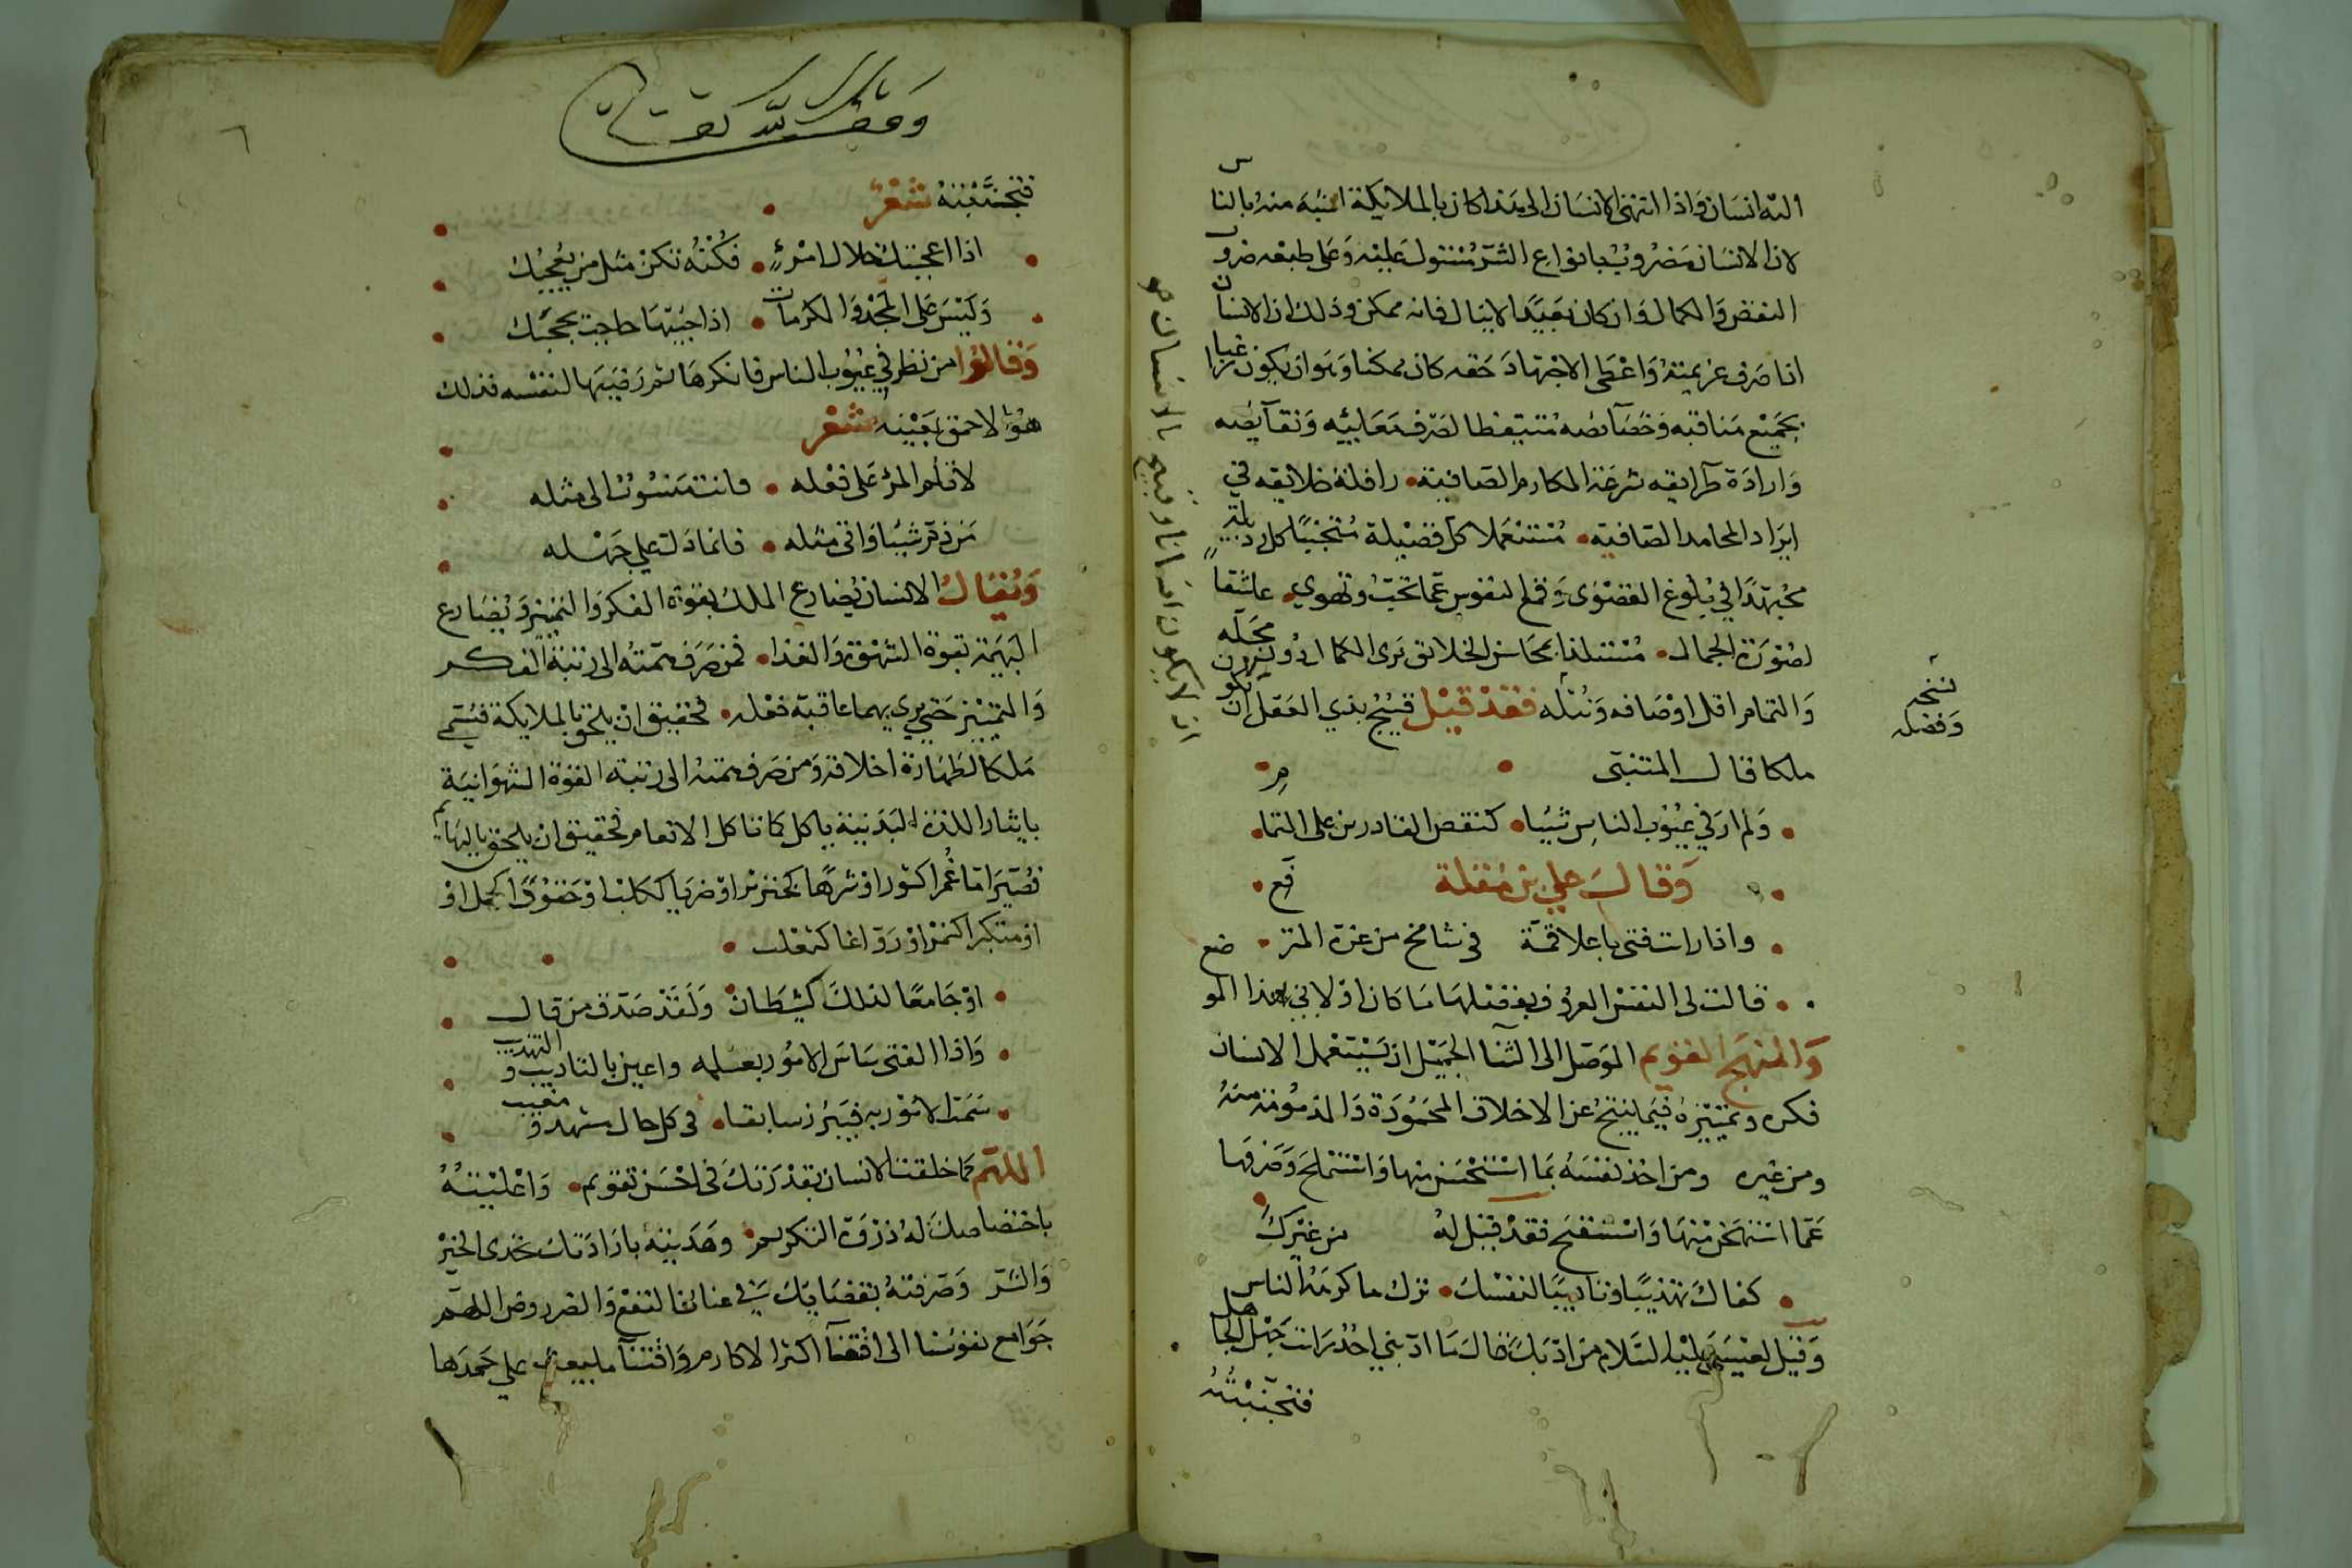 اليه انسان واذا انتهى الانسان الى هذا كان بالملايكة اشبه منه بالناس
لان الانسان مضروب بانواع الشر مستول عليه وعلى طبعه ضروب
النقص والكمال وان كان بعيدا لاينال فانه ممكن وذلك ان الانسان
اذا صرف عزيمته واعطى الاجتهاد حقه كان ممكنا وهو ان يكون
بجميع مناقبه وخصايصه متيقظا لصرف معايبه ونقايصه
وارادة طرايقه شرعة المكارم الصافية رافلة خلايقه في
ايراد المحامد الصافية مستعملا كل فضيلة متجنبا كل رذيلة
مجتهدا في بلوغ القصوى وقمع النفوس عما تحب وتهوي عاشقا
لصورة الجمال مستلذا بمحاسن الخلايق يرى الكمال دون محله
والتمام اقل اوصافه ونبله فقد قيل قبيح بذي العقل ان يكون
ملكا قال المتنبى
ولم ار في عيوب الناس شيئا كنقص القادرين على التمام
وقال علي بن مقلة
واذا رايت فتى باعلا قمة في شامخ من عزة المترفع
قالت لي النفس العروف بفضلها ما كان اولاني بهذا الموضع
والمنهج القويم الموصل الى الثنا الجميل ان يستعمل الانسان
فكره وتمييزه فيما ينتج عن الاخلاق المحمودة والمذمومة منه
ومن غيره ومن اخذ نفسه بما استحسن منها واستملح وصرفها
عما استهجن منها واستقبح فقد قيل له
كفاك تهذيبا وتاديبا لنفسك ترك ما كرهه الناس من غيرك
وقيل لعيسى عليه السلام من ادبك قال ما ادبني احد رايت جهل الجاهل
فتجنبته
نسخه
وفضله
وقف لله تعالى
٦
فتجنبته شعر
اذا اعجبتك خلال امرئ فكنه تكن مثل من يعجبك
وليس على المجد والمكرمات اذا جئتها حاجب يحجبك
وقالوا من نظر في عيوب الناس فانكرها ثم رضيها لنفسه فذلك
هو الاحمق بعينه شعر
لا تلم المرء على فعله وانت منسوب الى مثله
من ذم شيئا واتى مثله فانما دل علي جهله
ويقال الانسان يضارع الملك بقوة الفكر والتمييز ويضارع
البهيمة بقوة الشهوة والغذا فمن صرف همته الى رتبة الفكر
والتمييز حتى يرى بهما عاقبة فعله فحقيق ان يلحق بالملايكة فيسمى
ملكا لطهارة اخلاقه ومن صرف همته الى رتبة القوة الشهوانية
بايثار اللذة البدنية ياكل كما تاكل الانعام فحقيق ان يلحق بالبهايم
فيصير اما غمرا كثور او شرها كخنزير او ضريا ككلب او حقودا كجمل او
او متكبرا كنمر او رواغا كثعلب
او جامعا لذلك كشيطان ولقد صدق من قال
واذا الفتى ساس الامور بعلمه واعين بالتاديب والتهذيب
سمت الامور به فيبرز سابقا في كل حال مشهد ومغيب
اللهم كما خلقت الانسان بقدرتك في احسن تقويم واعليته
باختصاصك له ذروة التكريم وهديته بارادتك نجدى الخير
والشر وصرفته بقضايك في عنانى النفع والضر روض اللهم
جوامع نفوسنا الى افتنا اكثر الاكارم علي حمدها